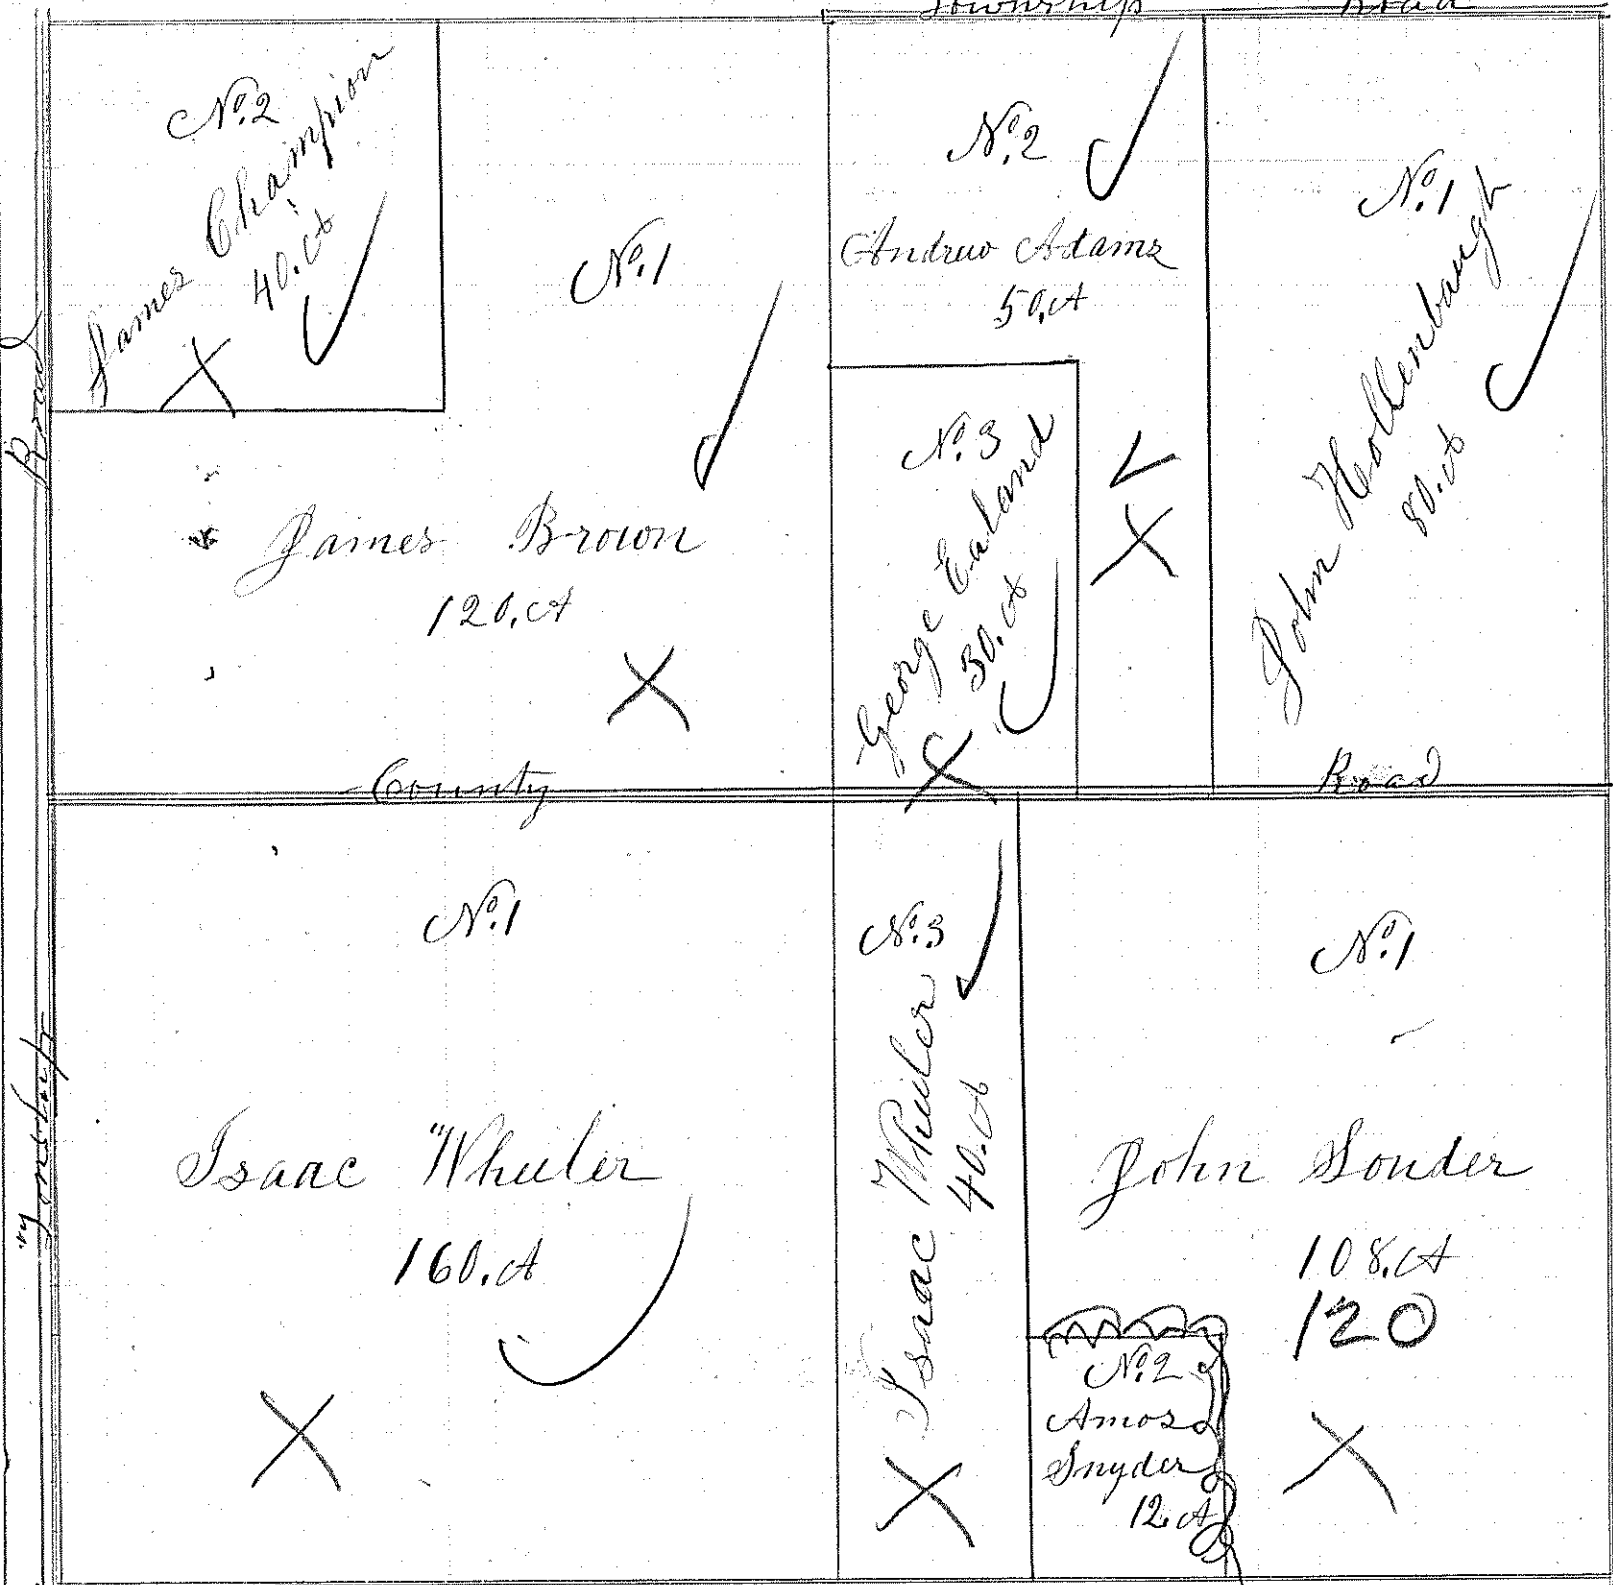 Township Road
No. 2
James Champion
40. A
No. 1
James Brown
120. A
No. 2
Andrew Adams
50. A
No. 3
George Ealand
30. A
No. 1
John Hollenbaugh
80. A
Road
Township
County Road
No. 1
Isaac Wheeler
160. A
No. 3
Isaac Wheeler
40. A
No. 1
John Souder
108. A
120
No. 2
Amos
Snyder
12. A